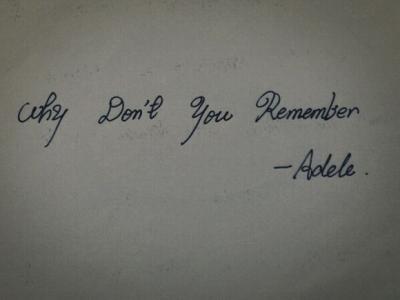 Why Don't You Remember
-Adele.